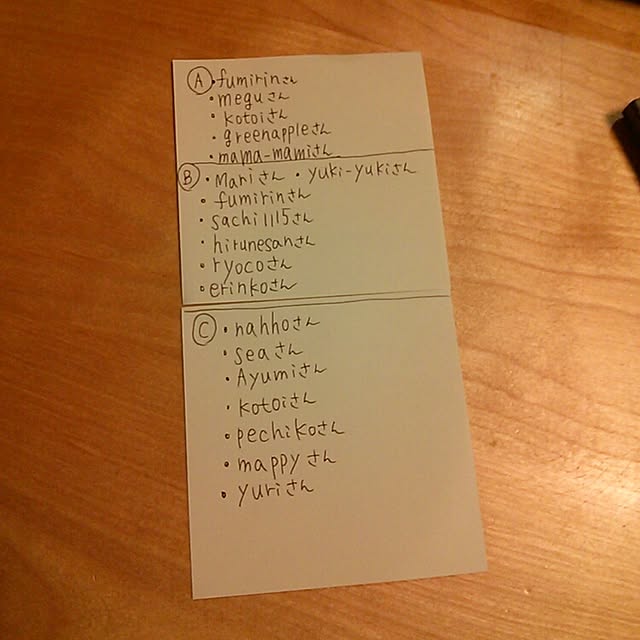 Ⓐ・fumirinさん
・meguさん
・kotoiさん
・greenappleさん
・mama-mamiさん
Ⓑ・Mariさん ・yuki-yukiさん
・fumirinさん
・sachi1115さん
・hirunesanさん
・ryocoさん
・erinkoさん
Ⓒ・nahhoさん
・seaさん
・Ayumiさん
・kotoiさん
・pechikoさん
・mappyさん
・yuriさん